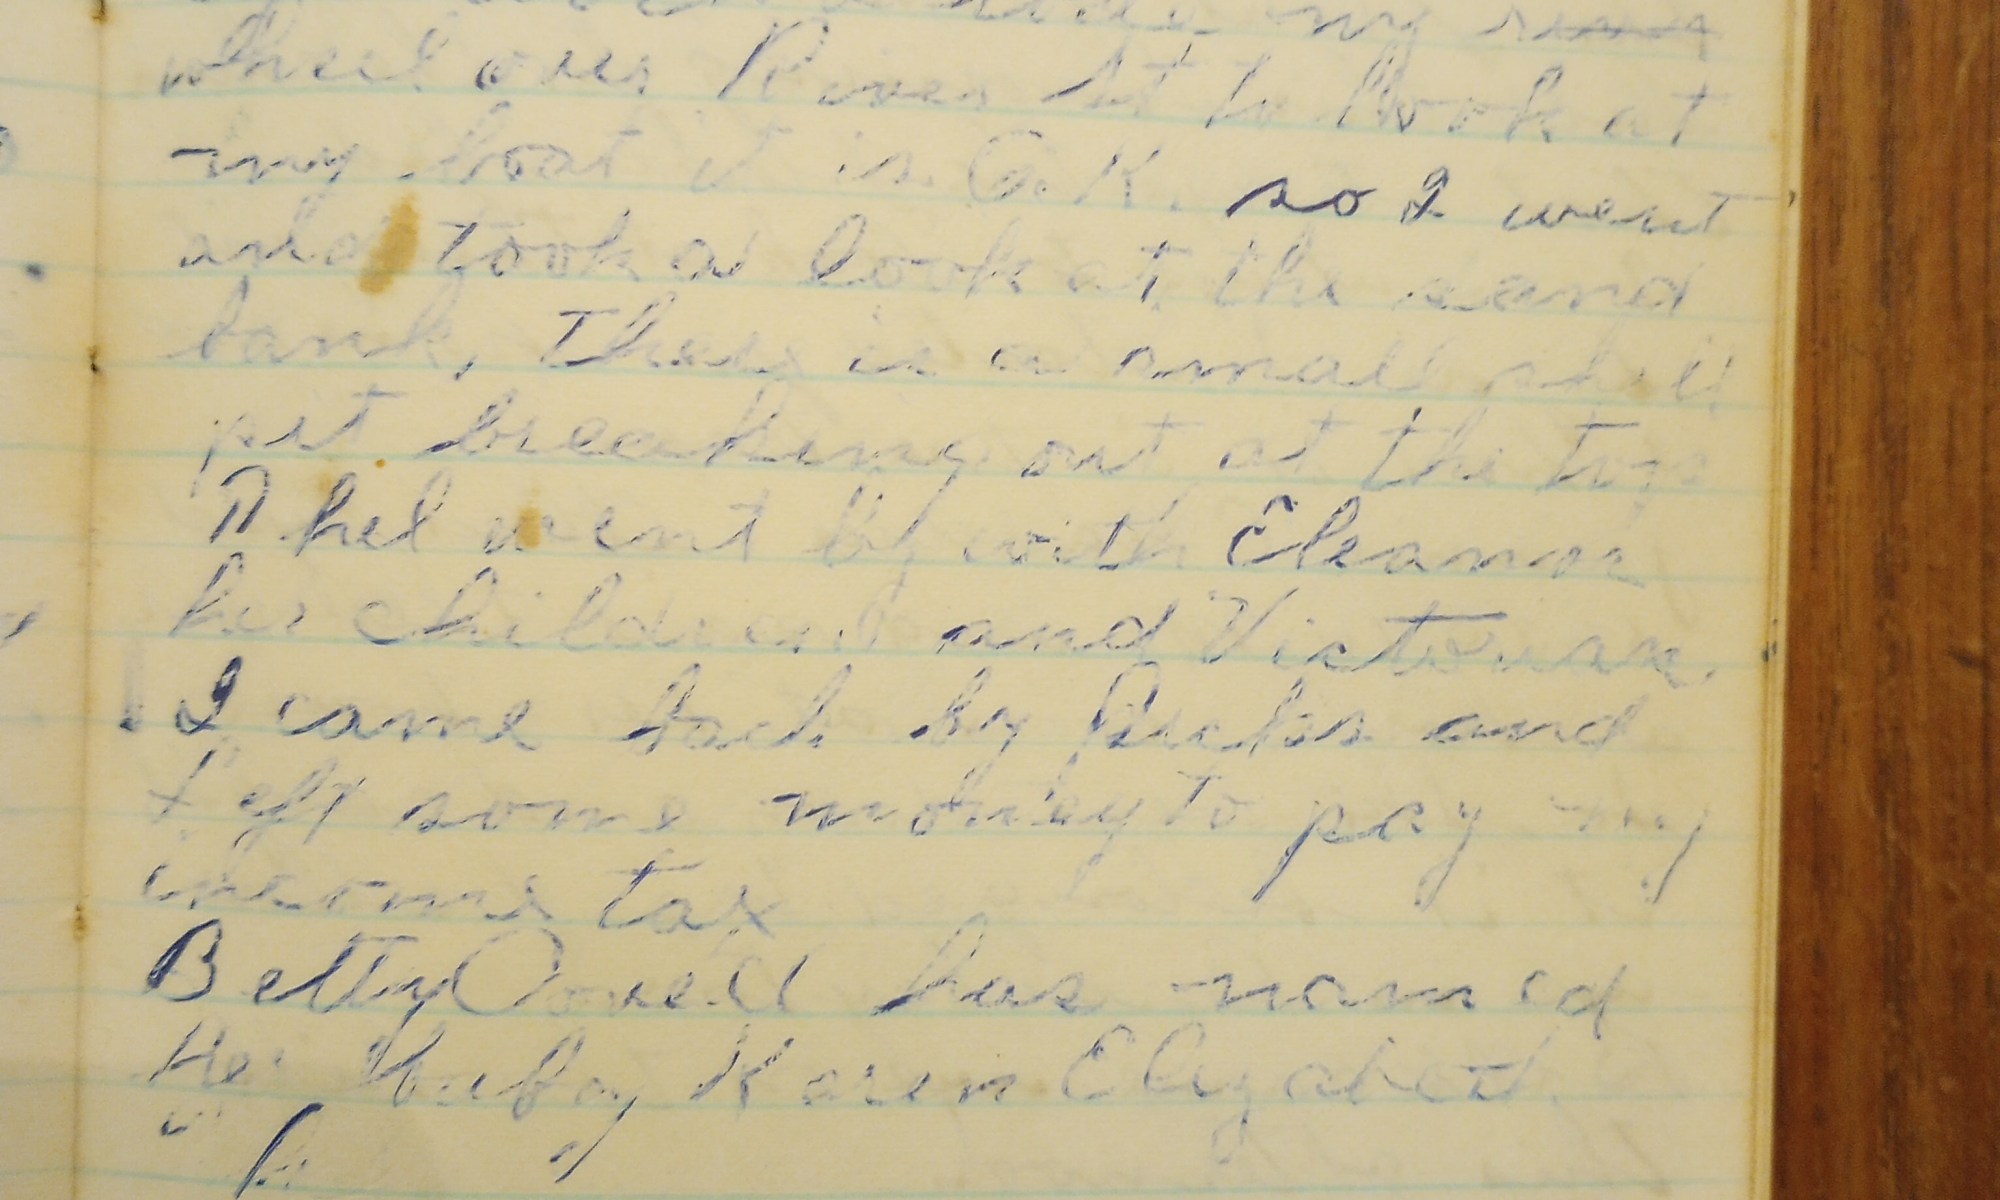 my
wheel over River St to look at
my boat it is O.K. so I went
and took a look at the sand
bank, There is a small
pit breaking out at the top
Phel went by with Eleanor
her children and
I came back by and
left some money to pay my
income tax
Betty has named
Her baby Karen Elizabeth.